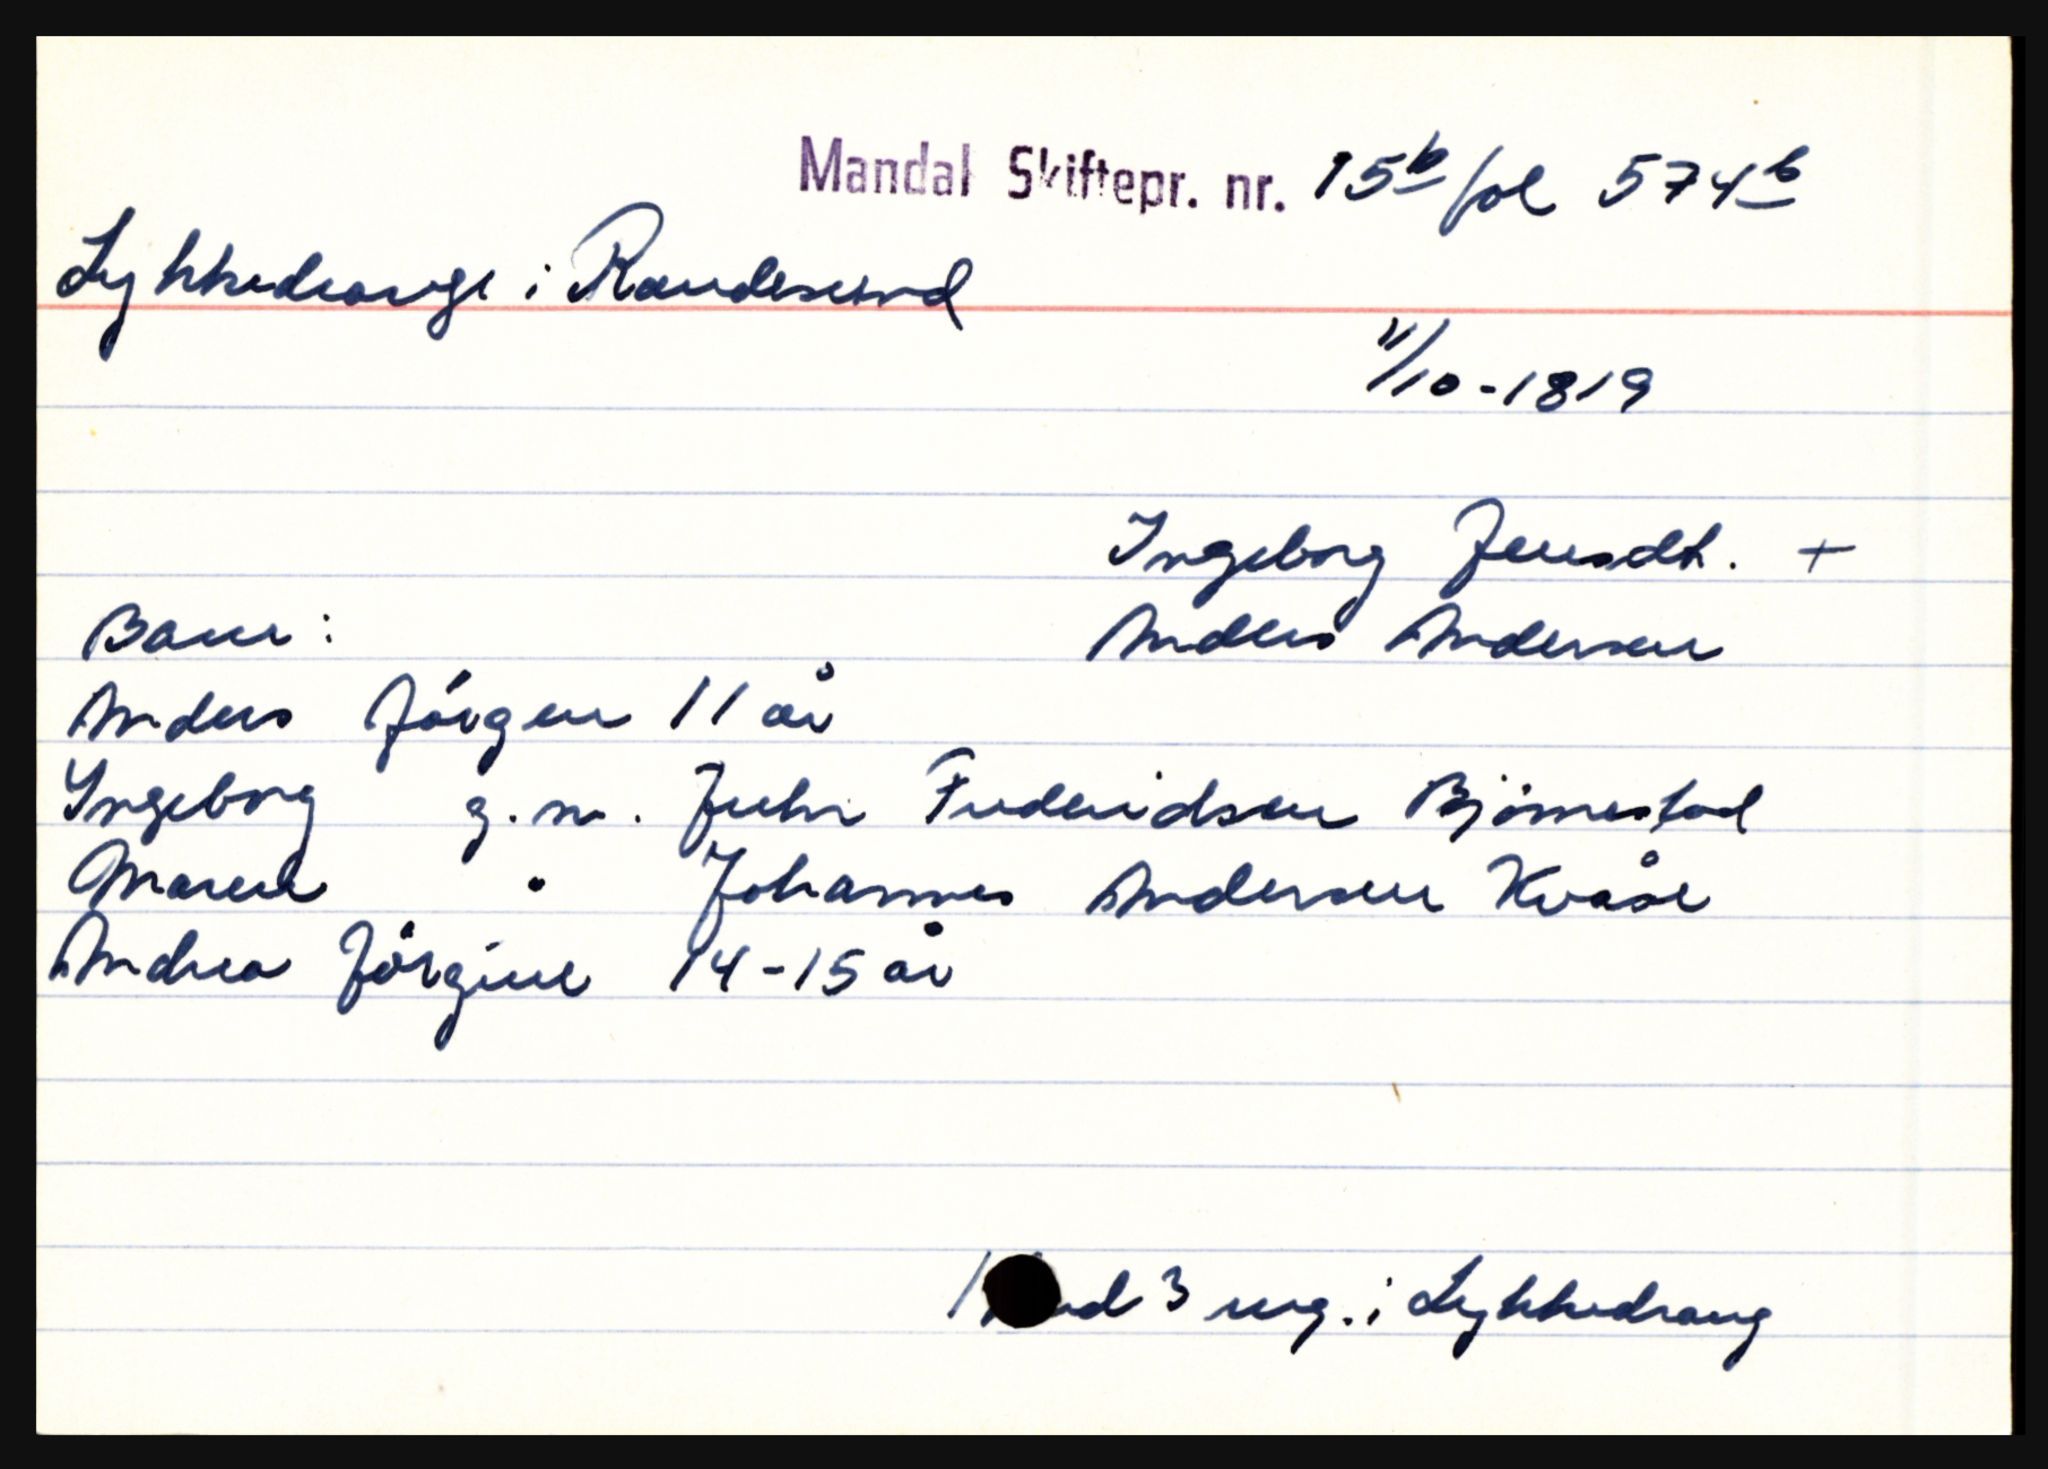 Mandal Skiftepr. nr. 15b fol 574b
Lykkedrange i Randesund
11/10-1819
Ingeborg Jensdt. +
Barn: Anders Andersen
Anders Jörgen 11 år
Ingeborg g.m. Jens Frederichsen Björnestad
Maren " Johannes Andersen Kvåse
Andrea Jörgine 14-15 år
3 eng. i Lykkedrang